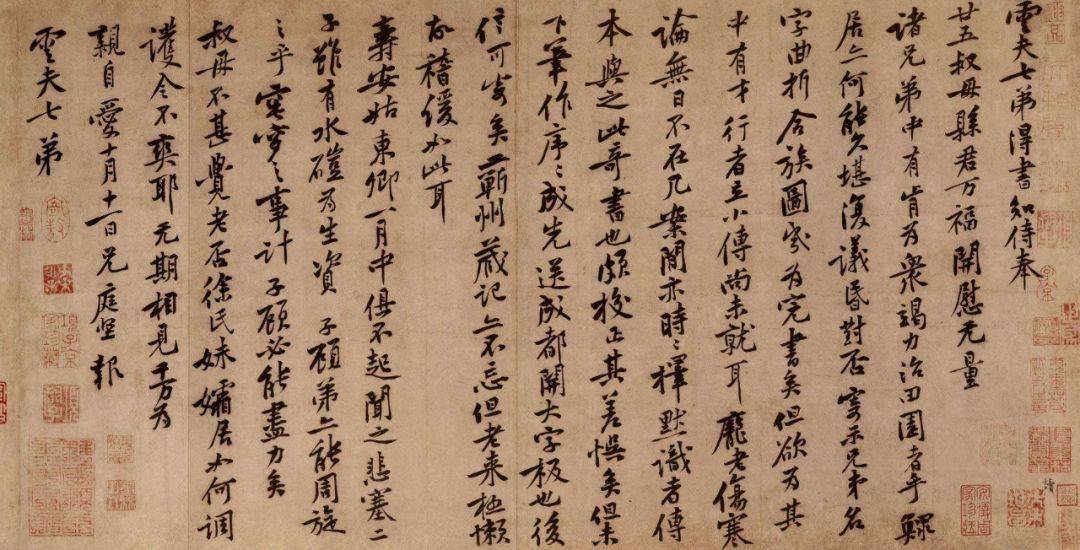 雲夫七弟得書知侍奉
廿五叔母縣君万福開慰无量
諸兄弟中有肯為衆竭力治田園者乎鰥
居亦何能久堪復議昏對否寄示兄弟名
字曲折合族圖幾為完書矣但欲為其
中有才行者立小傳尚未就耳龐老傷寒
論無日不在几案閒亦時〻擇默識者傳
本與之此奇書也頗校正其差悞矣但未
下筆作序〻成先送成都開大字板也後
信可寄矣蘄州藏記亦不忘但老来極懶
故稽緩如此耳
壽安姑東卿一月中俱不起聞之悲塞二
子雖有水磑為生資子顧弟亦能周旋
之乎窀穸之事計子顧必能盡力矣
叔母不甚覺老否徐氏妹孀居如何調
護令不爽耶无期相見千万為
親自愛十月十一日兄庭堅報
雲夫七弟